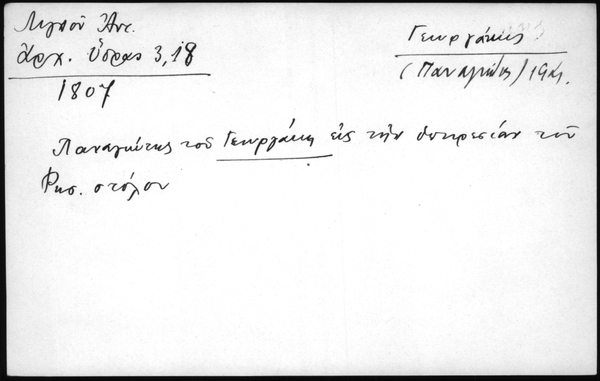 Λιγνοῦ Ἀντ.
Ἀρχ. Ὕδρας 3,18
1807
Γεωργάκης
(Παναγιώτης)
Παναγιώτης τοῦ Γεωργάκη εἰς τὴν ὑπηρεσίαν τοῦ
Ρωσ. στόλου